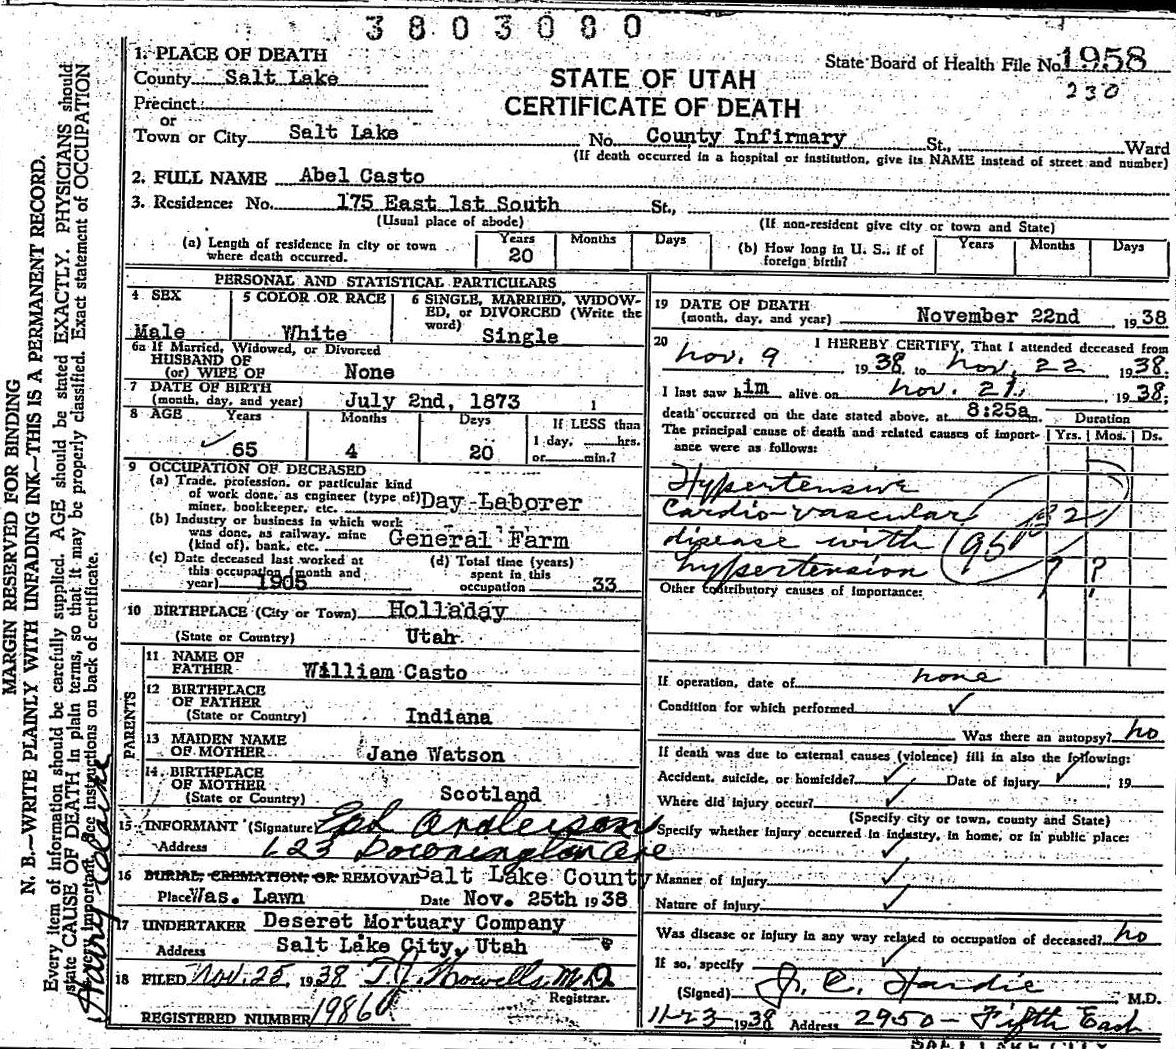 3803080
1. PLACE OF DEATH
County Salt Lake
Precinct
or
Town or City Salt Lake
STATE OF UTAH
CERTIFICATE OF DEATH
State Board of Health File No. 1958
230
No. County Infirmary St., Ward
(If death occurred in a hospital or institution, give its NAME instead of street and number)
2. FULL NAME Abel Casto
3. Residence: No. 175 East 1st South St.,
(Usual place of abode) (If non-resident give city or town and State)
(a) Length of residence in city or town where death occurred. Years 20 Months Days
(b) How long in U. S., if of foreign birth? Years Months Days
PERSONAL AND STATISTICAL PARTICULARS
4 SEX Male
5 COLOR OR RACE White
6 SINGLE, MARRIED, WIDOW-
ED, or DIVORCED (Write the
word) Single
6a If Married, Widowed, or Divorced
HUSBAND OF
(or) WIFE OF None
7 DATE OF BIRTH
(month, day, and year) July 2nd, 1873
8 AGE Years 65 Months 4 Days 20
If LESS than
1 day, hrs.
or min.?
9 OCCUPATION OF DECEASED
(a) Trade, profession, or particular kind
of work done, as engineer (type of)
miner, bookkeeper, etc. Day Laborer
(b) Industry or business in which work
was done, as railway, mine
(kind of), bank, etc. General Farm
(c) Date deceased last worked at
this occupation (month and
year) 1905
(d) Total time (years)
spent in this
occupation 33
10 BIRTHPLACE (City or Town) Holladay
(State or Country) Utah
PARENTS
11 NAME OF
FATHER William Casto
12 BIRTHPLACE
OF FATHER
(State or Country) Indiana
13 MAIDEN NAME
OF MOTHER Jane Watson
14 BIRTHPLACE
OF MOTHER
(State or Country) Scotland
15 INFORMANT (Signature) Ed Anderson
Address 123 Downington Ave
16 BURIAL, CREMATION, OR REMOVAL Salt Lake County
Place Was. Lawn Date Nov. 25th 1938
17 UNDERTAKER Deseret Mortuary Company
Address Salt Lake City, Utah
18 FILED Nov. 25 1938 T.J. Howells, M.D.
Registrar.
REGISTERED NUMBER 1986
19 DATE OF DEATH
(month, day, and year) November 22nd, 1938
20 I HEREBY CERTIFY, That I attended deceased from
Nov. 9 1938 to Nov. 22 1938.
I last saw him alive on Nov. 21, 1938;
death occurred on the date stated above, at 8:25a m.
Duration
The principal cause of death and related causes of import-
ance were as follows: Yrs. Mos. Ds.
Hypertensive
Cardio-vascular 132
disease with 95
hypertension ? ?
Other contributory causes of importance:
If operation, date of none
Condition for which performed ✓
Was there an autopsy? no
If death was due to external causes (violence) fill in also the following:
Accident, suicide, or homicide? ✓ Date of injury ✓, 19
Where did injury occur? ✓
(Specify city or town, county and State)
Specify whether injury occurred in industry, in home, or in public place:
✓
Manner of injury ✓
Nature of injury ✓
Was disease or injury in any way related to occupation of deceased? no
If so, specify ✓
(Signed) J. C. Hardie M.D.
11-23 1938 Address 2950 - Fifth East
SALT LAKE CITY
MARGIN RESERVED FOR BINDING
N. B.—WRITE PLAINLY WITH UNFADING INK—THIS IS A PERMANENT RECORD.
Every item of information should be carefully supplied. AGE should be stated EXACTLY. PHYSICIANS should
state CAUSE OF DEATH in plain terms, so that it may be properly classified. Exact statement of OCCUPATION
very important. See instructions on back of certificate.